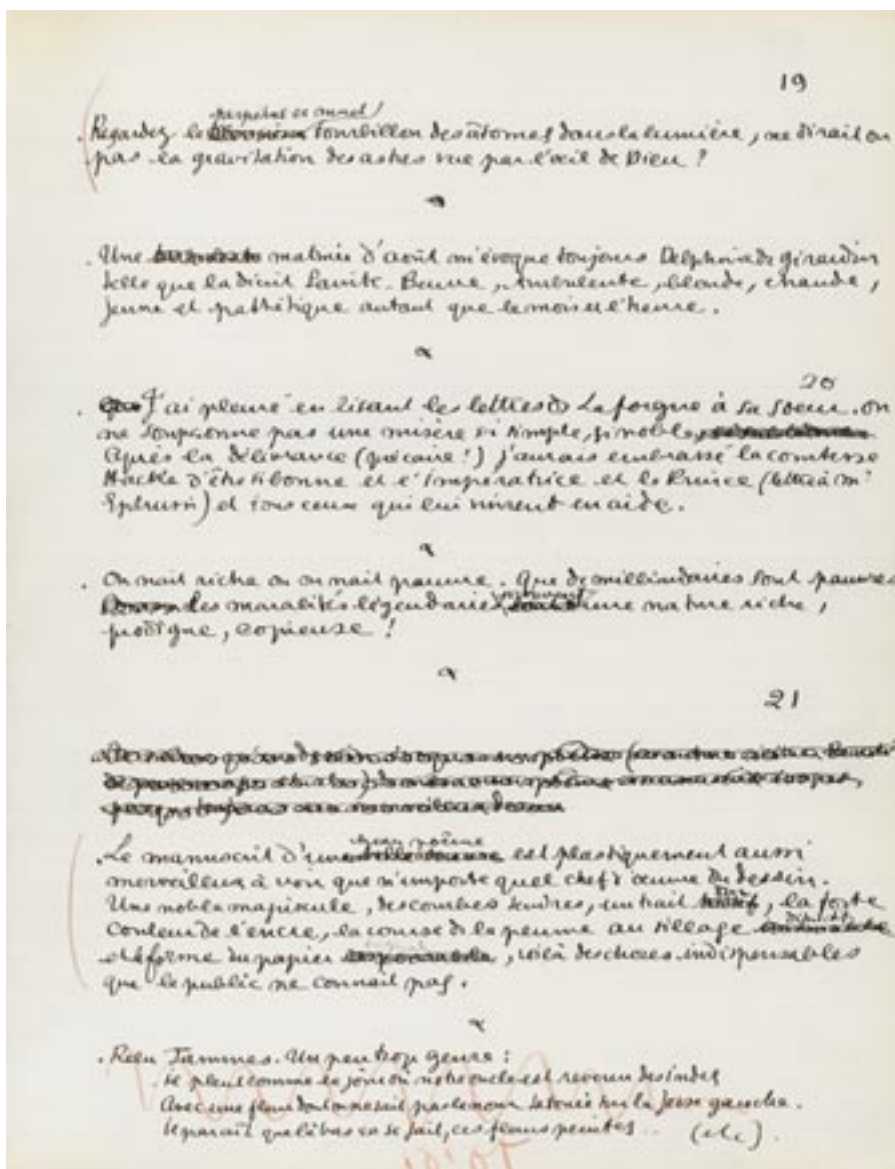 19
perpétuel et muet
Regardez le tourbillon des atomes dans la lumière, ne dirait on
pas la gravitation des astres vue par l'œil de Dieu ?
Une matinée d'août m'évoque toujours Delphine de Girardin
telle que la décrit Sainte-Beuve, turbulente, blonde, chaude,
jeune et pathétique autant que le mois et l'heure.
20
J'ai pleuré en lisant les lettres de Laforgue à sa soeur. on
ne soupçonne pas une misère si simple, si noble,
Après la délivrance (précaire !) j'aurais embrassé la comtesse
Hacke d'être si bonne et l'impératrice et le Prince (lettre à Mr
Ephrussi) et tous ceux qui lui vinrent en aide.
On nait riche ou on nait pauvre. Que de millionnaires sont pauvres
Les moralités légendaires une nature riche,
prodigue, copieuse !
21
beau poème
Le manuscrit d'un est plastiquement aussi
merveilleux à voir que n'importe quel chef d'œuvre du dessin.
Une noble majuscule, des courbes tendres, un trait, la forte
couleur de l'encre, la course de la plume au sillage
et la forme du papier, voilà des choses indispensables
que le public ne connait pas.
Relu Jammes. Un peu trop genre :
Il pleut comme le jour où notre oncle est revenu des Indes
Avec une fleur dont on ne sait pas le nom tatouée sur la fesse gauche.
Il parait que là bas ça se fait, ces fleurs peintes... (etc).